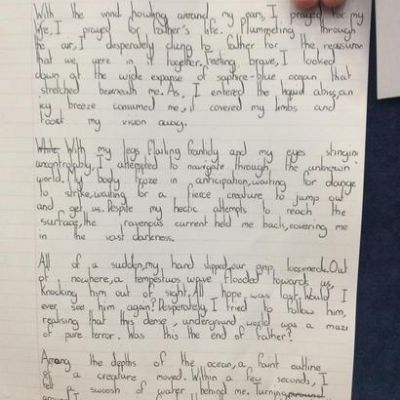 With the wind howling around my ears, I prayed for my
life, I prayed for father's life. Plummeting through
the air, I desperately clung to father for the reassuran
that we were in it together. Feeling brave, I looked
down at the wide expanse of sapphire-blue ocean that
stretched beneath me. As, I entered the liquid abyss, an
icy breeze consumed me, it covered my limbs and
took my vision away.
While With my legs flailing frantidly and my eyes stinging
uncontrolably, I attempted to navigate through the unknown
world. My body froze in anticipation, waiting for danger
to strike, waiting for a fierce creature to jump out
and get us. Despite my hectic attempts to reach the
surface, the ravenous current held me back, covering me
in the vast darkness.
All of a sudden, my hand slipped, our grip loosened. Out
of nowhere, a tempestuos wave flooded towards us,
knocking him out of sight. All hope was lost. Would I
ever see him again? Desperately, I tried to follow him,
realising that this dense, underground world was a maze
of pure terror. Was this the end of father?
Among the depths of the ocean, a faint outline
of a creature moved. Within a few seconds, I
a swoosh of water behind me. Turning around